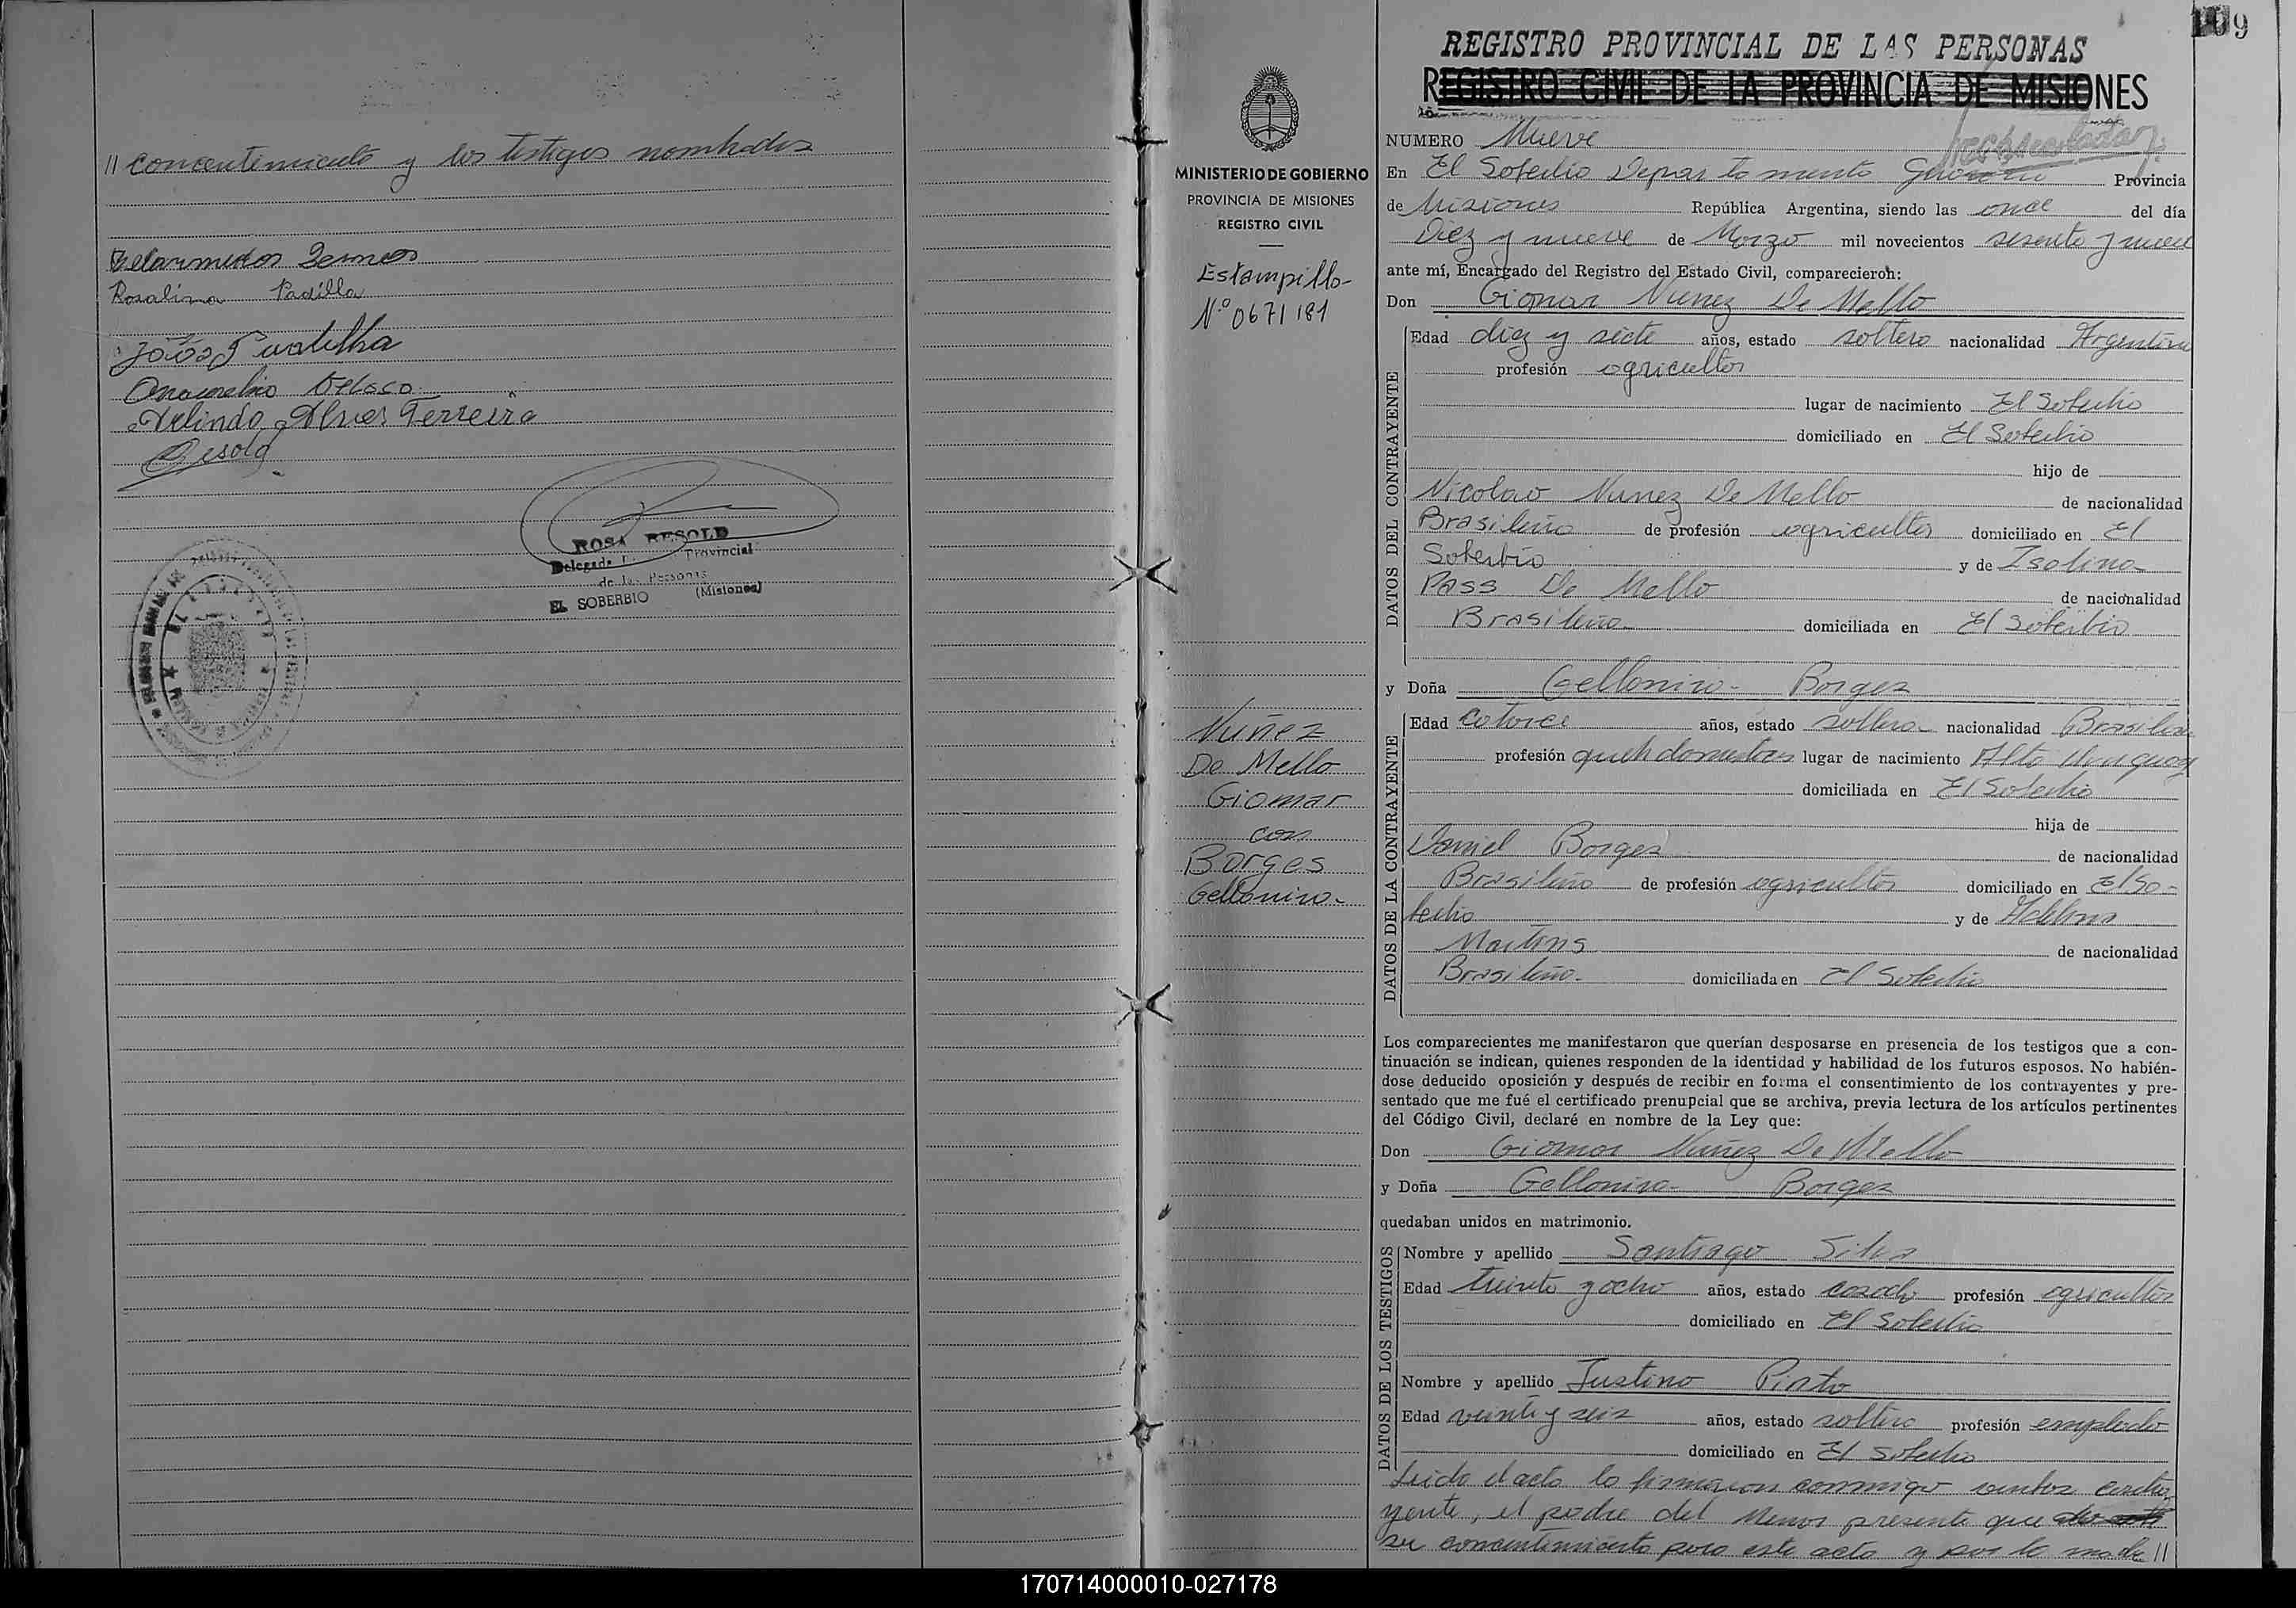 // concentimiento y los testigos nombrados
Rosalina Padilla
Arlindo Alves Ferreira
Besold
ROSA BESOLD
Delegada Provincial
de las Personas
EL SOBERBIO (Misiones)
109
REGISTRO PROVINCIAL DE LAS PERSONAS
REGISTRO CIVIL DE LA PROVINCIA DE MISIONES
MINISTERIO DE GOBIERNO
PROVINCIA DE MISIONES
REGISTRO CIVIL
Estampilla
Nº 0671181
Nuñez
De Mello
Giomar
con
Borges
Gellonira-
NUMERO Nueve
En El Soberbio Departamento Guarani Provincia
de Misiones República Argentina, siendo las once del día
Diez y nueve de Marzo mil novecientos sesenta y nueve
ante mí, Encargado del Registro del Estado Civil, comparecieron:
Don Giomar Nunez De Mello
DATOS DEL CONTRAYENTE
Edad diez y siete años, estado soltero nacionalidad Argentina
profesión agricultor
lugar de nacimiento El Soberbio
domiciliado en El Soberbio
hijo de
Nicolao Nunez De Mello de nacionalidad
Brasileño de profesión agricultor domiciliado en El
Soberbio y de Isolina
Pass De Mello de nacionalidad
Brasileña domiciliada en El Soberbio
y Doña Gellonira- Borges
DATOS DE LA CONTRAYENTE
Edad Catorce años, estado soltera nacionalidad Brasileña
profesión queh domesticos lugar de nacimiento Alto Uruguay
domiciliada en El Soberbio
hija de
Daniel Borges de nacionalidad
Brasileño de profesión agricultor domiciliado en El So-
berbio y de
Martins de nacionalidad
Brasileña- domiciliada en El Soberbio
Los comparecientes me manifestaron que querían desposarse en presencia de los testigos que a con-
tinuación se indican, quienes responden de la identidad y habilidad de los futuros esposos. No habién-
dose deducido oposición y después de recibir en forma el consentimiento de los contrayentes y pre-
sentado que me fué el certificado prenupcial que se archiva, previa lectura de los artículos pertinentes
del Código Civil, declaré en nombre de la Ley que:
Don Giomar Nuñez De Mello
y Doña Gellonira- Borges
quedaban unidos en matrimonio.
DATOS DE LOS TESTIGOS
Nombre y apellido Santiago Silva
Edad treinta y ocho años, estado casado profesión agricultor
domiciliado en El Soberbio
Nombre y apellido Justino Pinto
Edad veinte y seis años, estado soltero profesión empleado
domiciliado en El Soberbio
Leida el acta la firmaron conmigo contra
yente, el padre del Menor presente que
su concentimiento para este acto y por la madre //
170714000010-027178